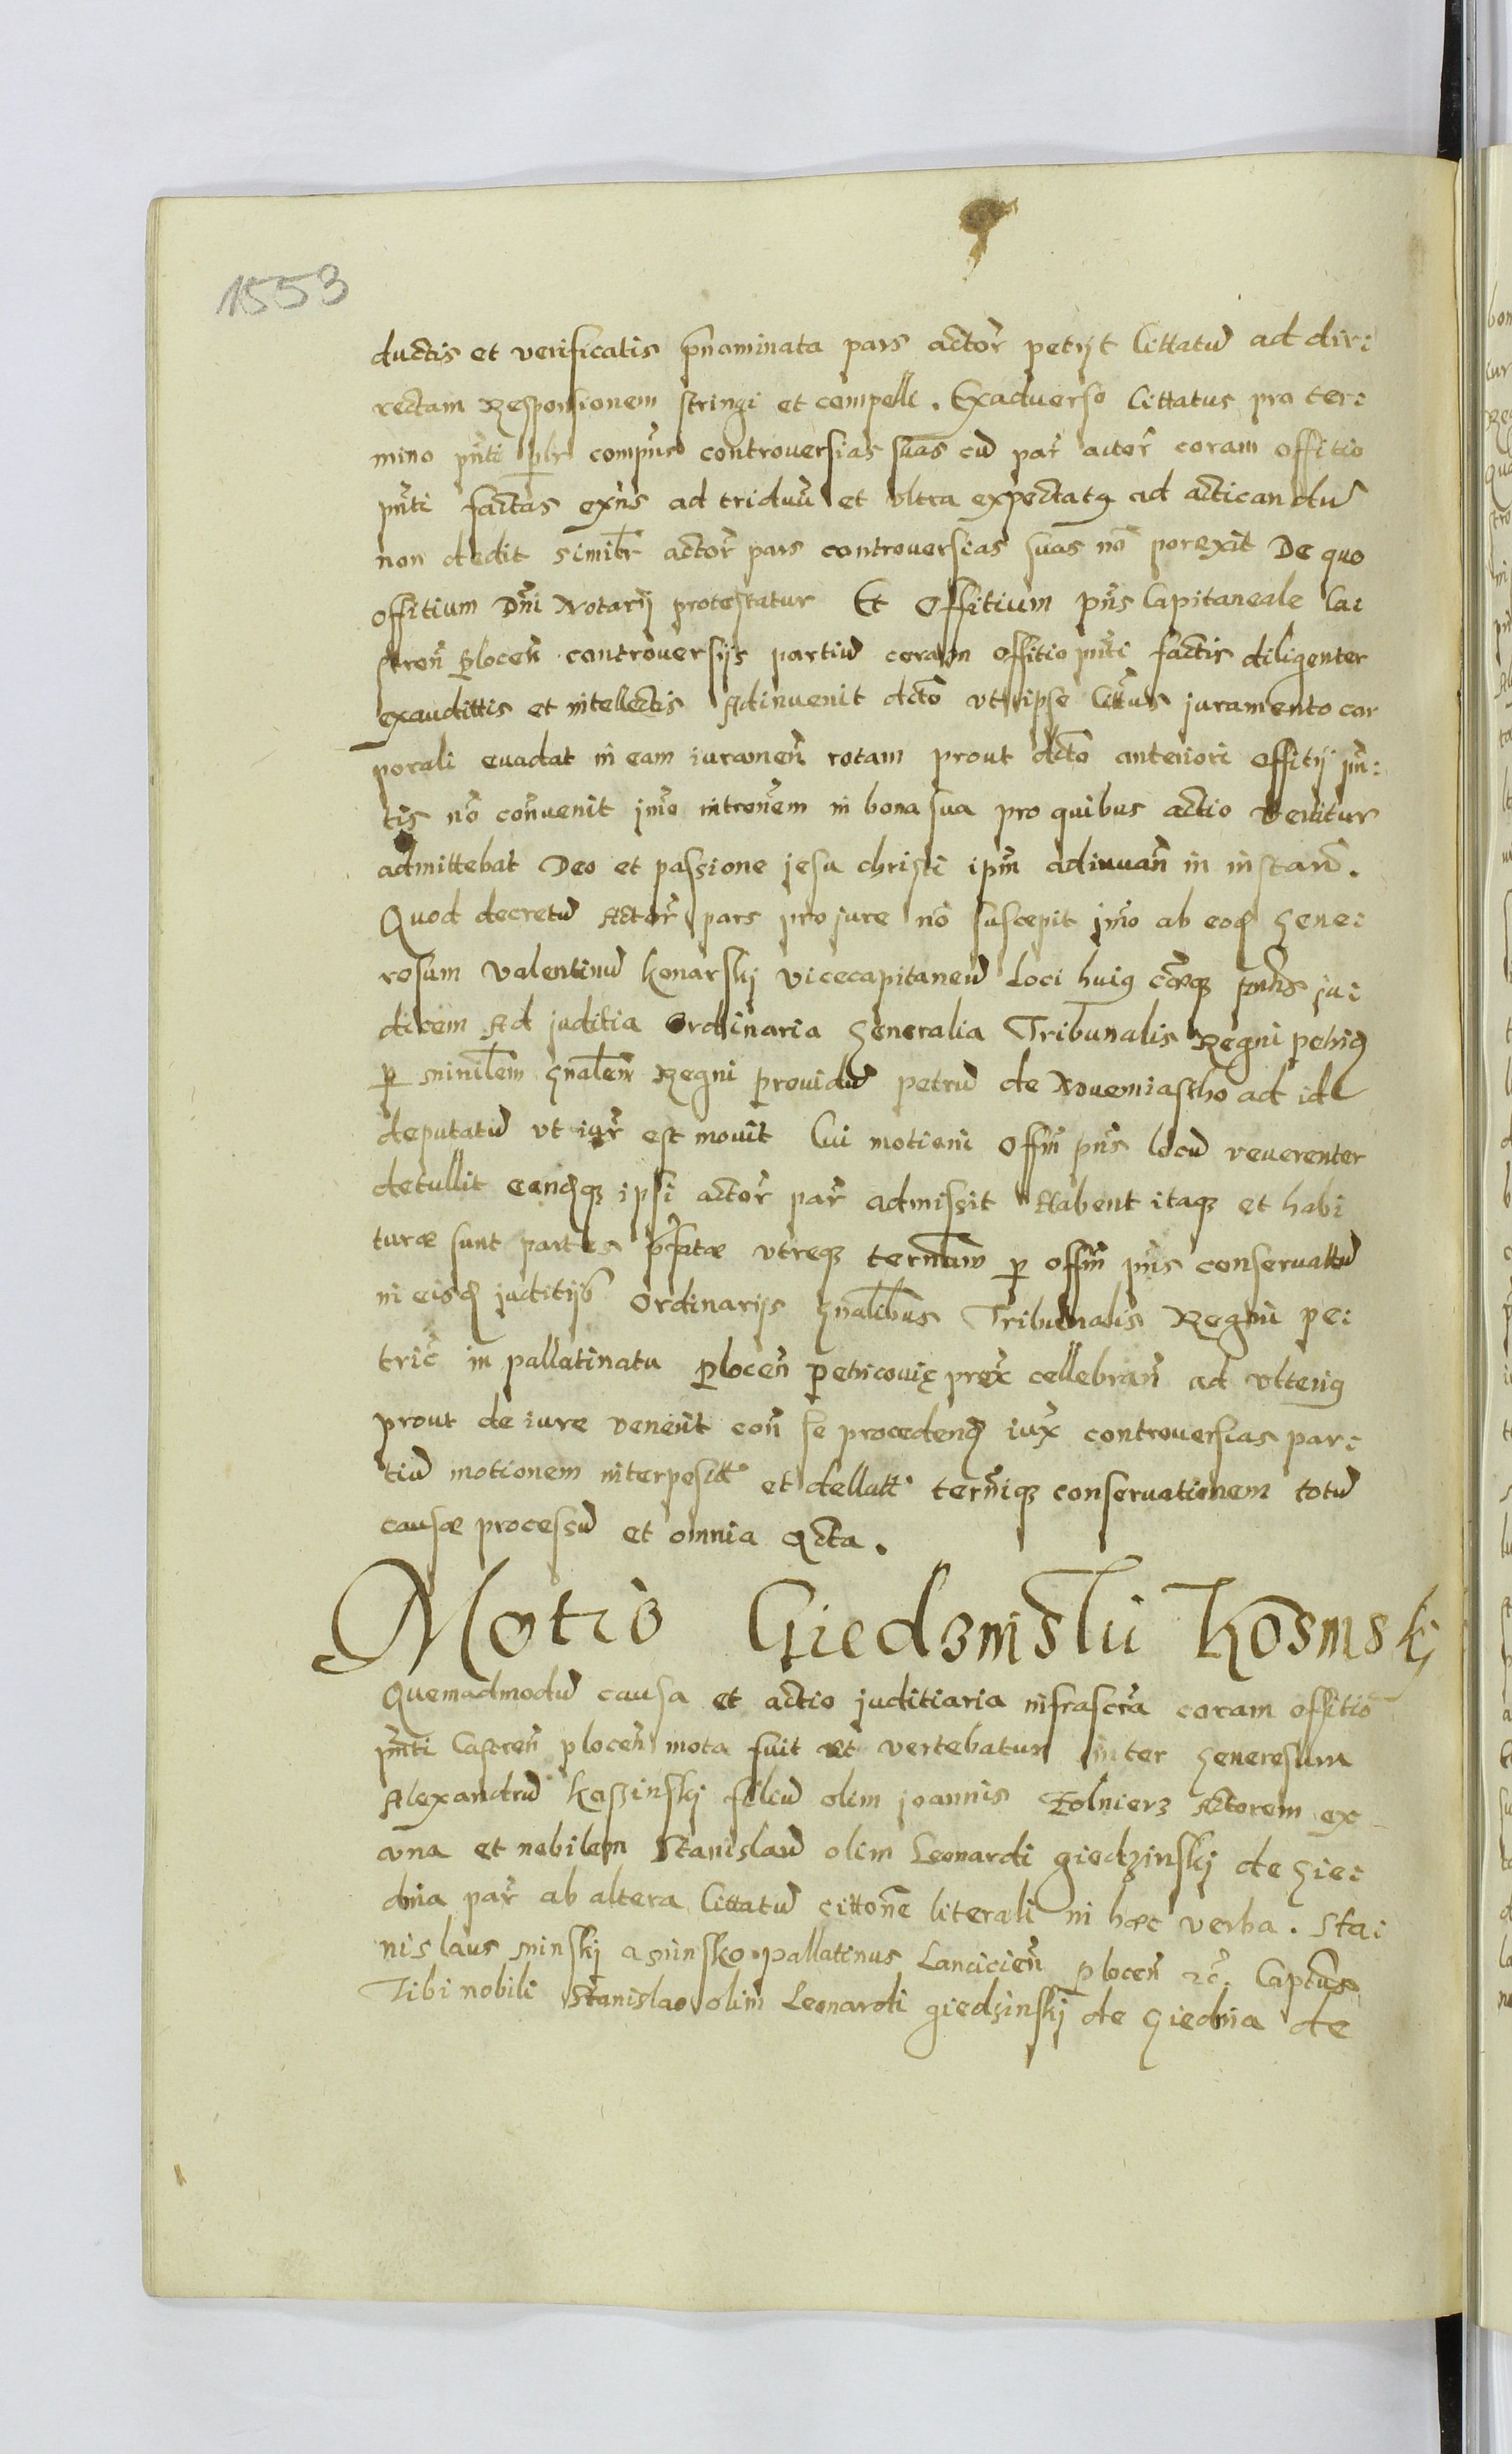 1553
ductis et verificatis p̄nominata pars actor̄ petijt Cittatū ad dir:
rectam Responsionem stringi et compelli. Exaduerso Cittatus pro ter:
mino pn̄ti plr̄ compūs controuersias suas cū par̄ actor̄ coram offitio
pn̄ti factas exn̄s ad triduū et vltra expectatꝯ ad acticandū
non dedit similr̄ actor̄ pars controuersias suas nō porexit De quo
offitium Dn̄i Notarij protestatur Et Offitium pn̄s Capitaneale Ca:
stren̄ Plocen̄ controuersijs partiū coram offitio pn̄ti factis diligenter
exaudittis et intellectis Adinuenit dctō vt ipse Citt̄us juramento cor
porali euadat in eam iuramen̄ rotam prout dctō anteriori offitij pn̄:
tis nō conuenit jmō intron̄em in bona sua pro quibus actio vertitur
admittebat Deo et passione jesu christi ipm̄ adiuuan̄ in instan̄.
Quod decretū Actor̄ pars pro jure nō suscepit jmō ab eod Gene:
rosum Valentinū Konarskj vicecapitaneū Loci huiꝯ cāeqꝫ pn̄tis ju:
dicem Ad juditia Ordinaria Generalia Tribunalis Regni petric
p minilem̄ gn̄alem̄ Regni prouidū petrū de Nouemiastho ad id
deputatū vt iur̄ est mouit Cui motioni Offm̄ pn̄s locū reuerenter
detullit eandqꝫ ipsi actor̄ par̄ admissit Habent itaqꝫ et habi
turæ sunt partes p̄fatæ vtreqꝫ termn̄m p offm̄ pn̄s conseruattū
in eisd juditijs Ordinarijs gn̄alibus Tribunalis Regni pe:
tric̄ in pallatinatu Plocen̄ Petricouię prox̄ cellebran̄ ad vlteriꝯ
prout de iure venerit con̄ se procedend iux̄ controuersias par:
tiū motionem interposit̄ et dellatt̄ termiqꝫ conseruationem totū
causæ processū et omnia Acta.
Motio Giedzinski Kosinskj
Quemadmodū causa et actio juditiaria infrascr̄a coram offitio
pn̄ti Castren̄ plocen̄ mota fuit et vertebatur inter Generosum
Alexandrū Kossinskj filiū olim joannis Zolnierz Actorem ex
vna et nobilem Stanislaū olim Leonardi giedzinskj de Gie:
dnia par̄ ab altera Cittatū cittōne literali in hæc verba. Sta:
nislaus minskj a minsko pallatinus Lancicien̄ plocen̄ ꝛc̄. Captūs
Tibi nobili Stanislao olim Leonardi giedzinskj de Giednia de